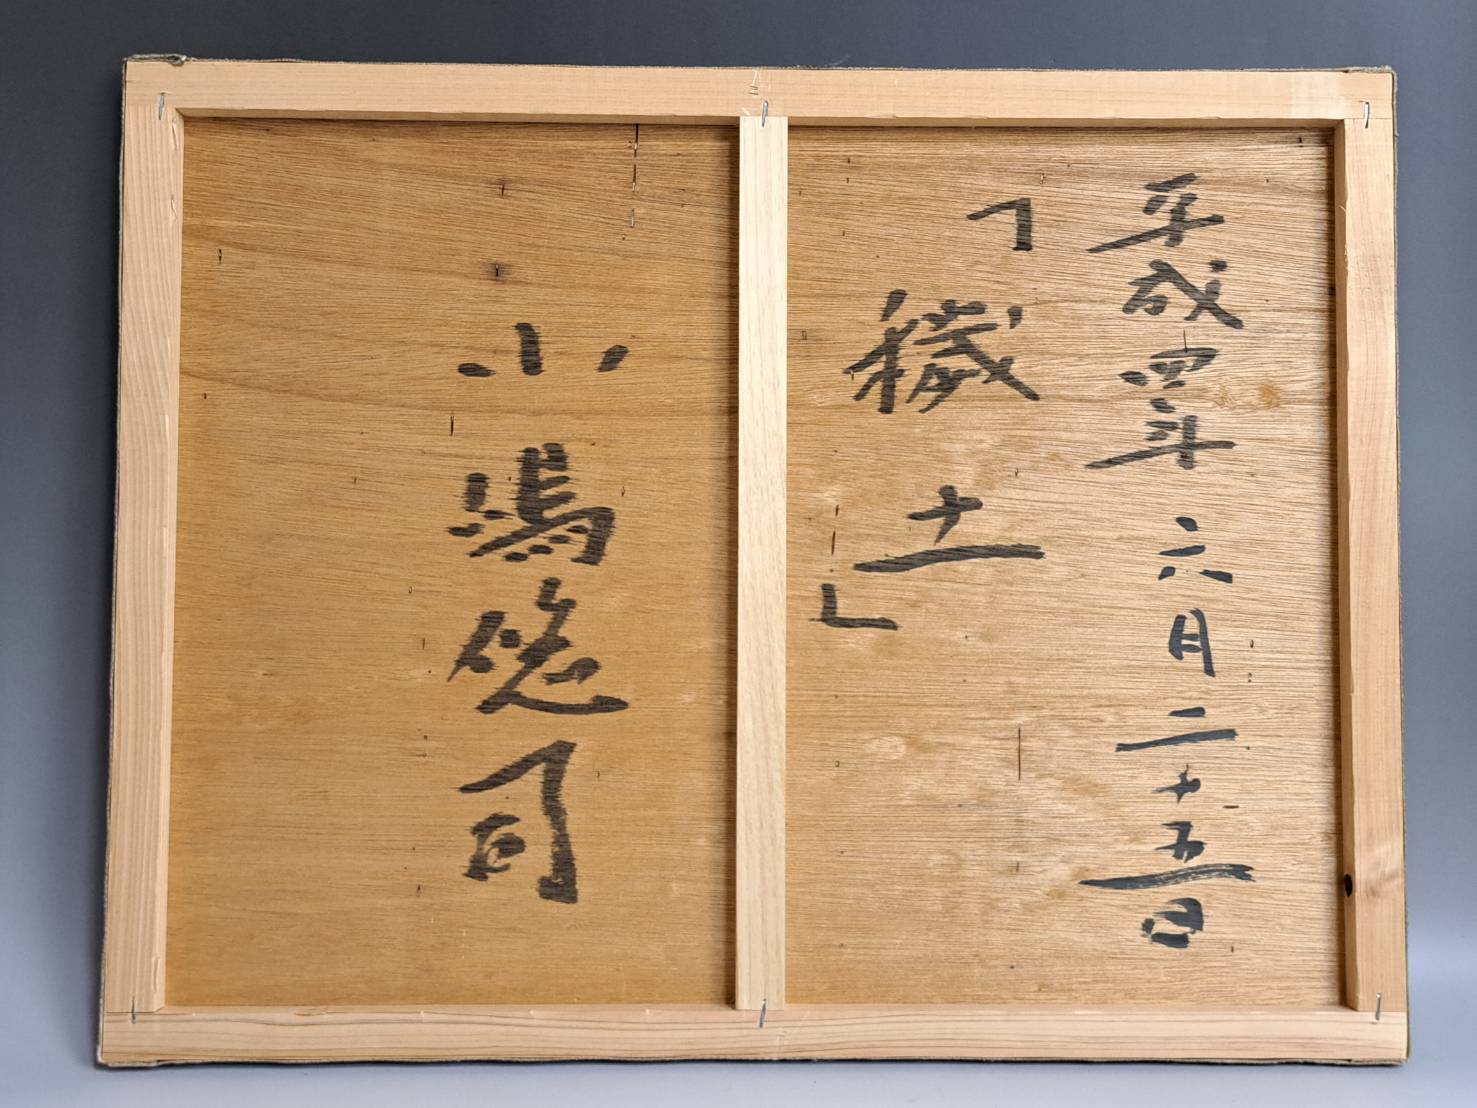 平成四年六月二十五日
「穢土」
小嶋悠司